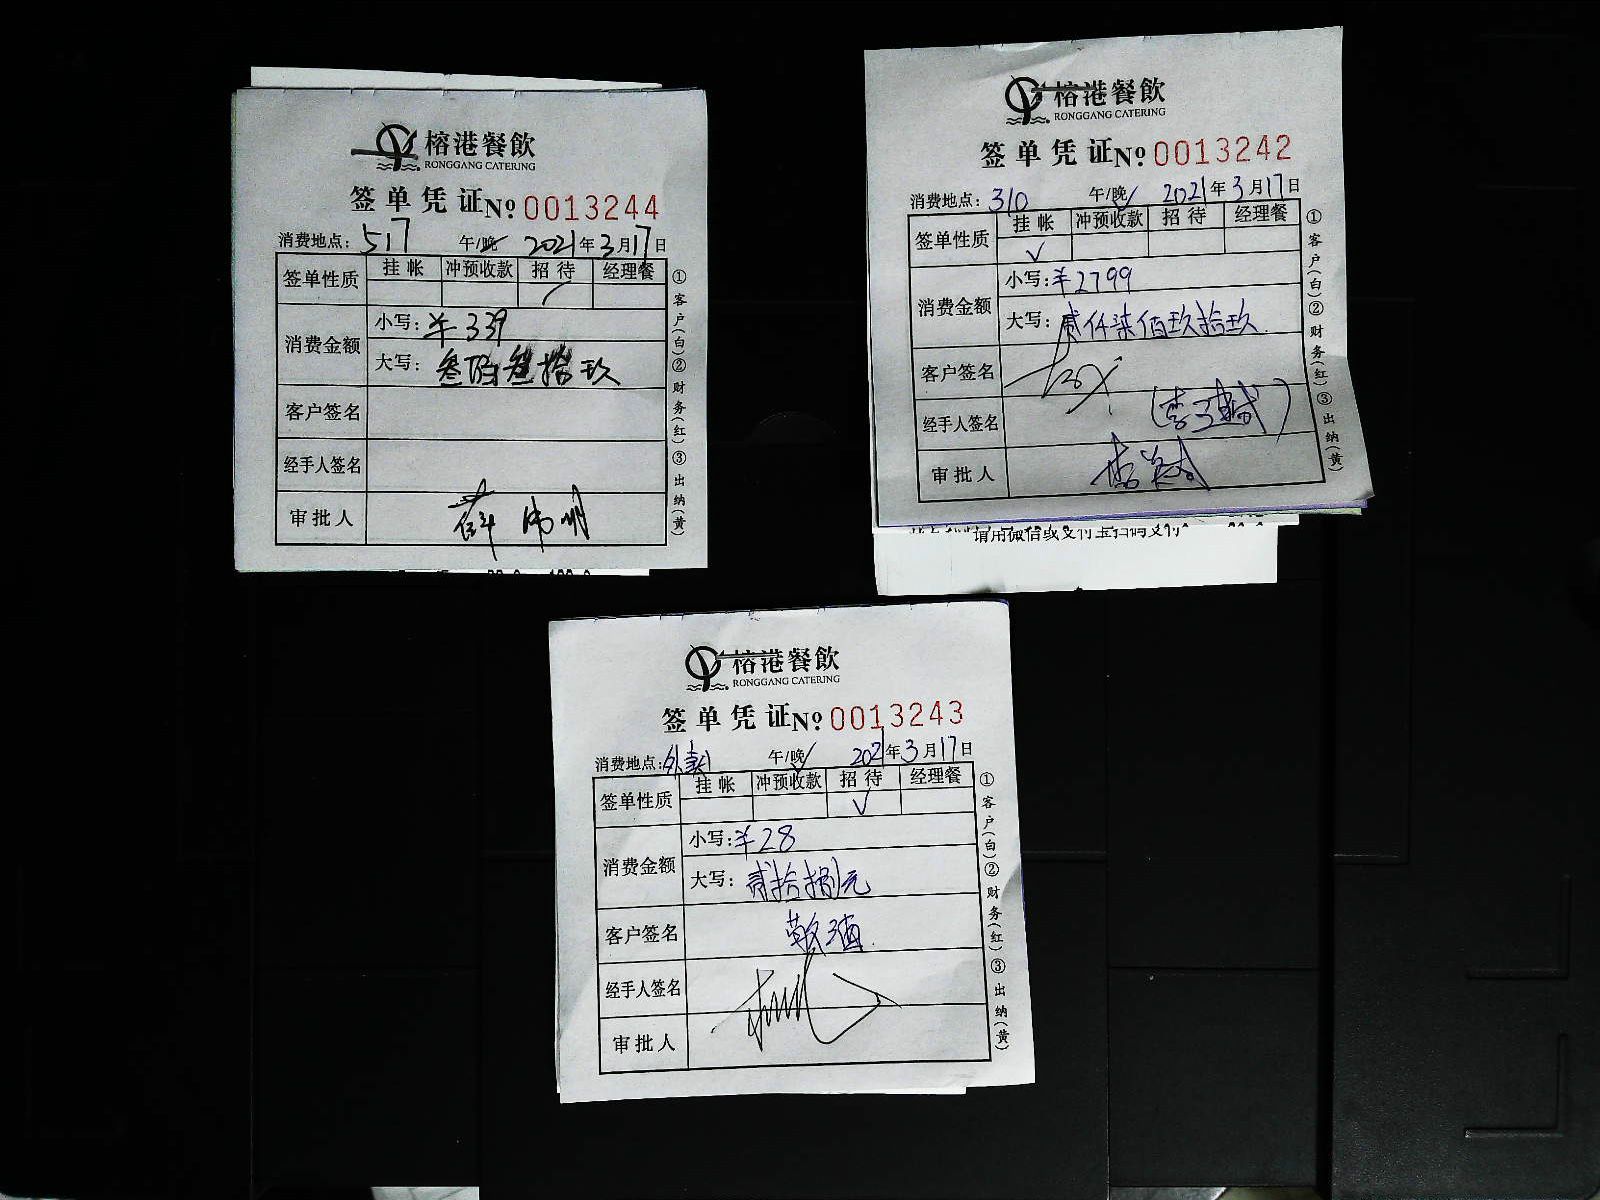 榕港餐飲
RONGGANG CATERING
签单凭证 № 0013244
消费地点: 517 午/晚 2021年3月17日
签单性质 挂帐 冲预收款 招待 经理餐
消费金额 小写: ¥339
大写: 叁佰叁拾玖
客户签名
经手人签名
审批人
①客户(白)②财务(红)③出纳(黄)
榕港餐飲
RONGGANG CATERING
签单凭证 № 0013242
消费地点: 310 午/晚 2021年3月17日
签单性质 挂帐 冲预收款 招待 经理餐
✓
消费金额 小写: ¥2799
大写: 贰仟柒佰玖拾玖
客户签名
经手人签名
审批人
①客户(白)②财务(红)③出纳(黄)
请用微信或支付宝扫码支付
榕港餐飲
RONGGANG CATERING
签单凭证 № 0013243
消费地点: 外卖1 午/晚 2021年3月17日
签单性质 挂帐 冲预收款 招待 经理餐
✓
消费金额 小写: ¥28
大写: 贰拾捌元
客户签名 敬酒
经手人签名
审批人
①客户(白)②财务(红)③出纳(黄)